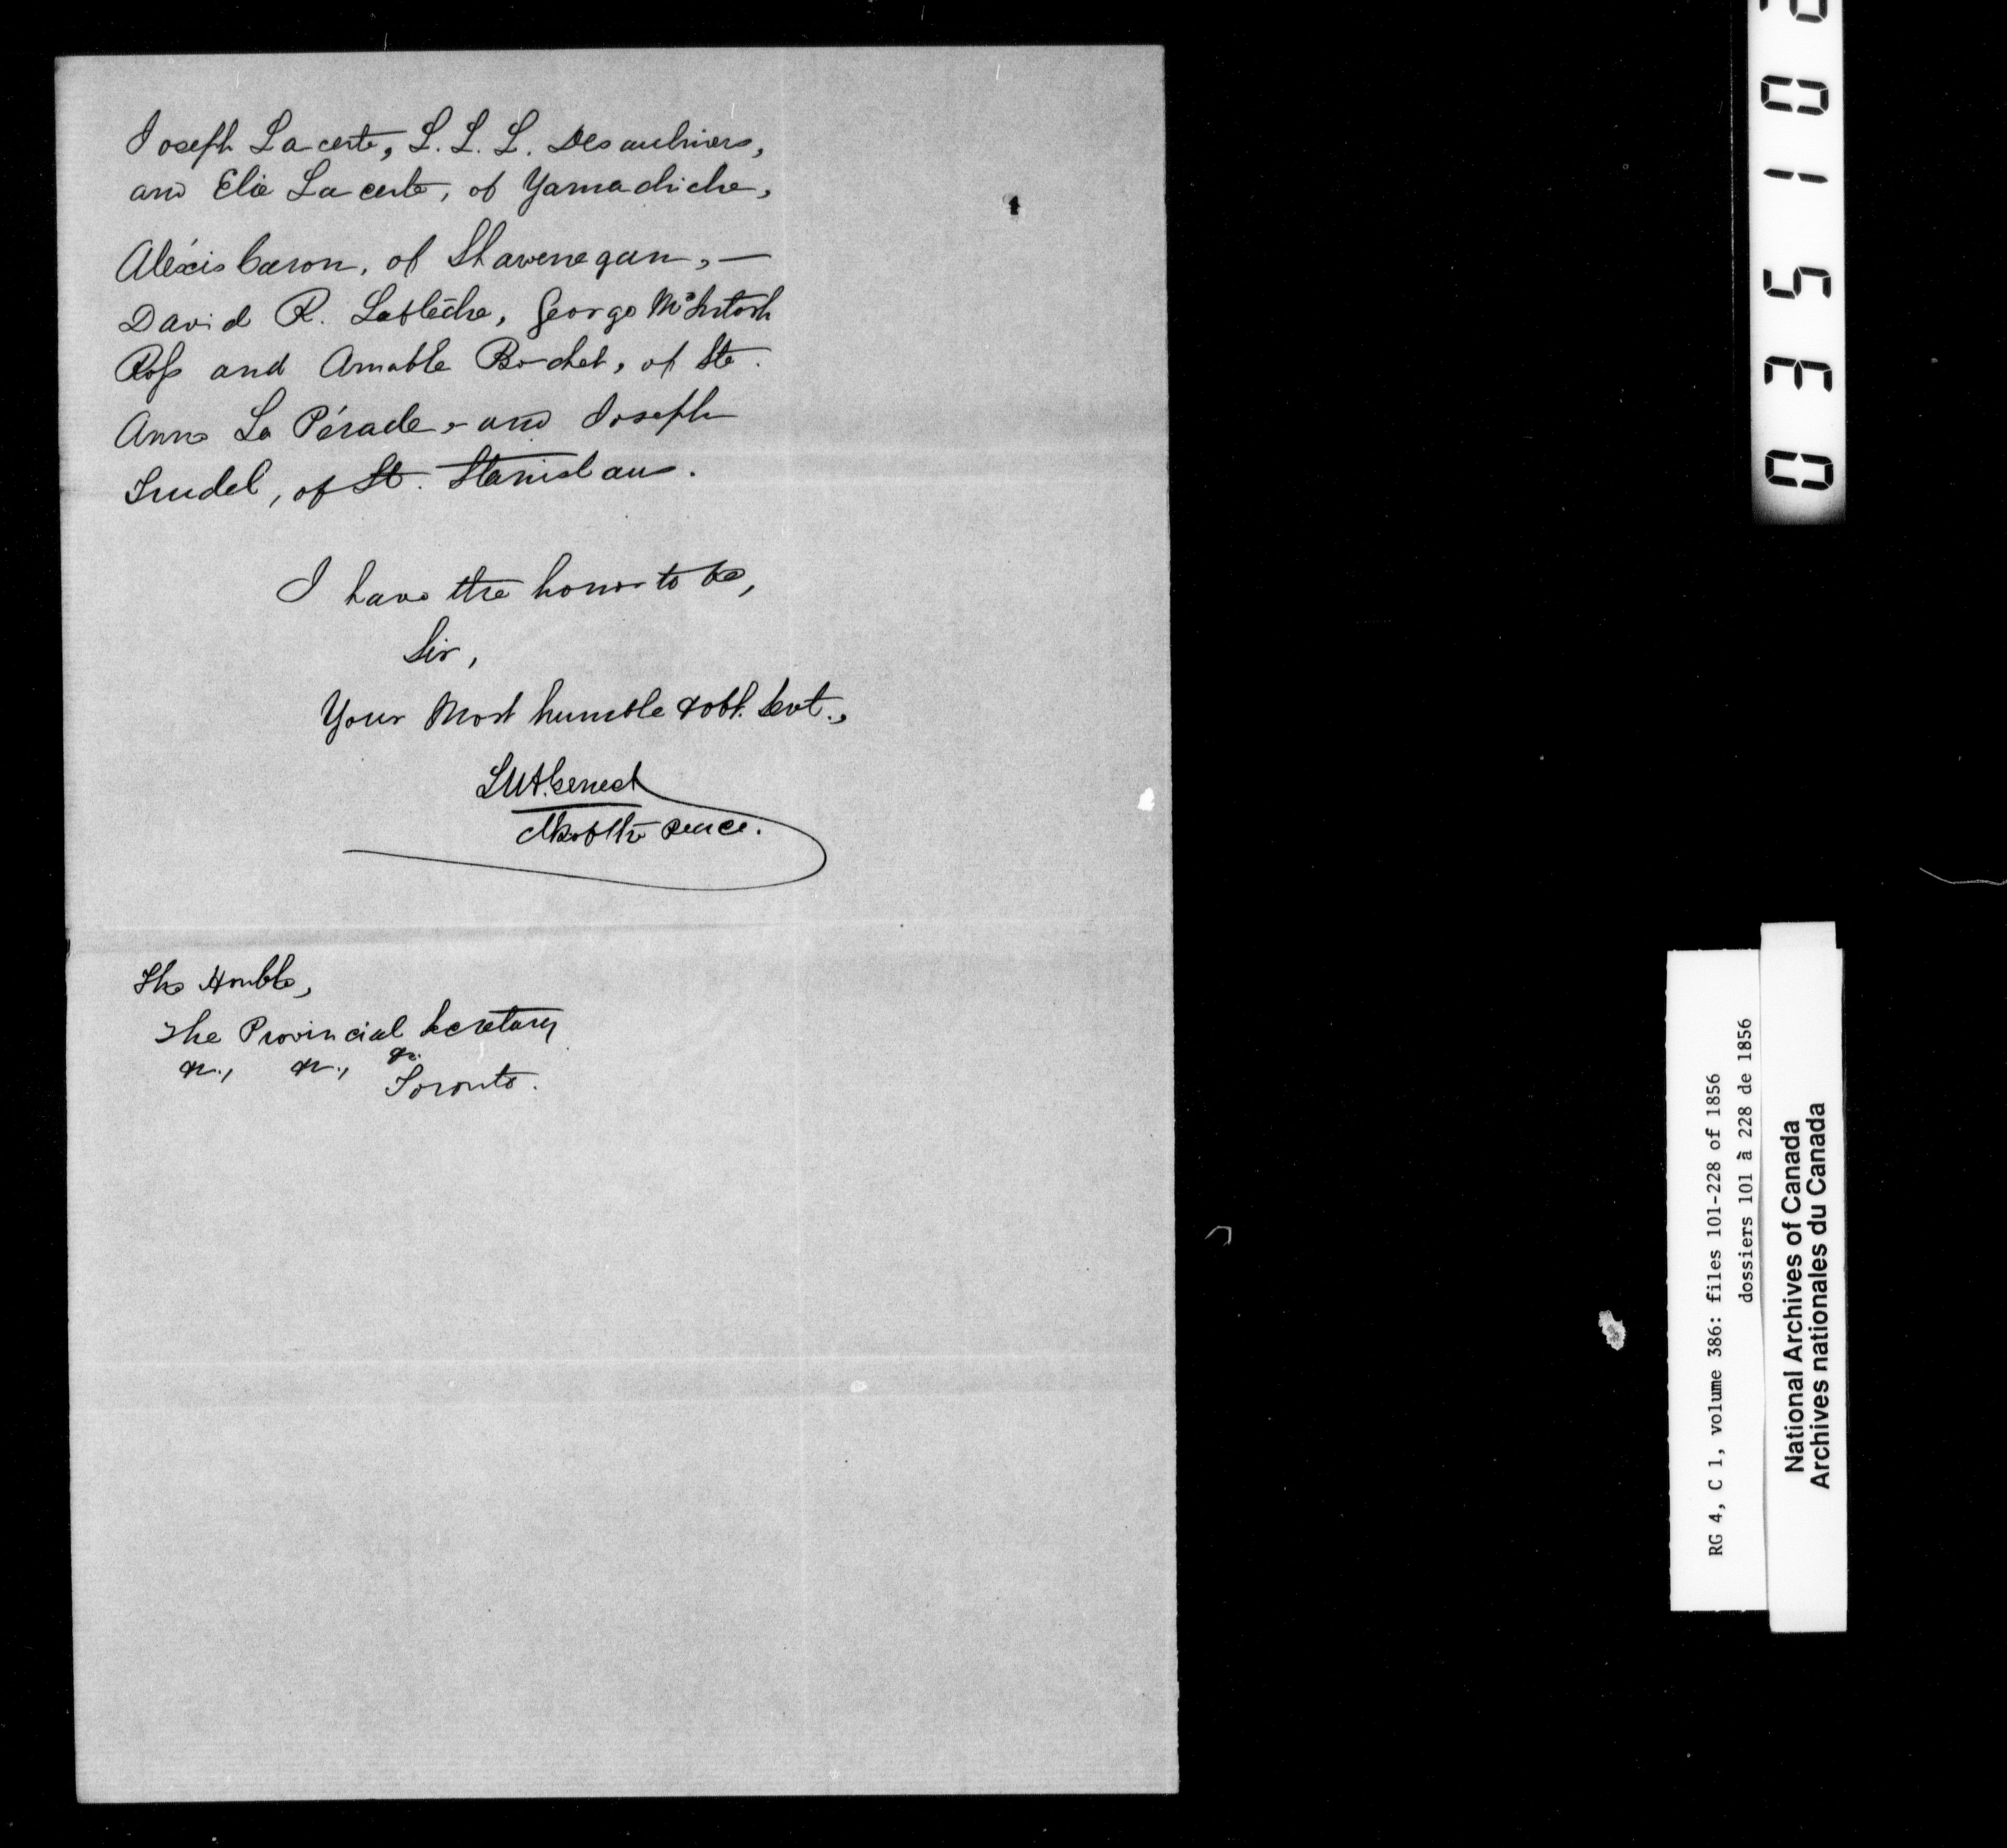 Joseph Lacerte, L. L. L. Desaulniers,
and Elie Lacerte, of Yamachiche,
Aléxis Caron, of Shawenegan, —
David R. Laflèche, George McIntosh
Ross and Amable Bochet, of Ste.
Anne La Pérade, and Joseph
Trudel, of St. Stanislaus.
I have the honor to be,
Sir,
Your Most humble & obt. Servt.,
L U A Genest
Clk of the Peace.
The Honble,
The Provincial Secretary
&c., &c., &c.
Toronto.
0 3 5 1 0
RG 4, C 1, volume 386: files 101-228 of 1856
dossiers 101 à 228 de 1856
National Archives of Canada
Archives nationales du Canada